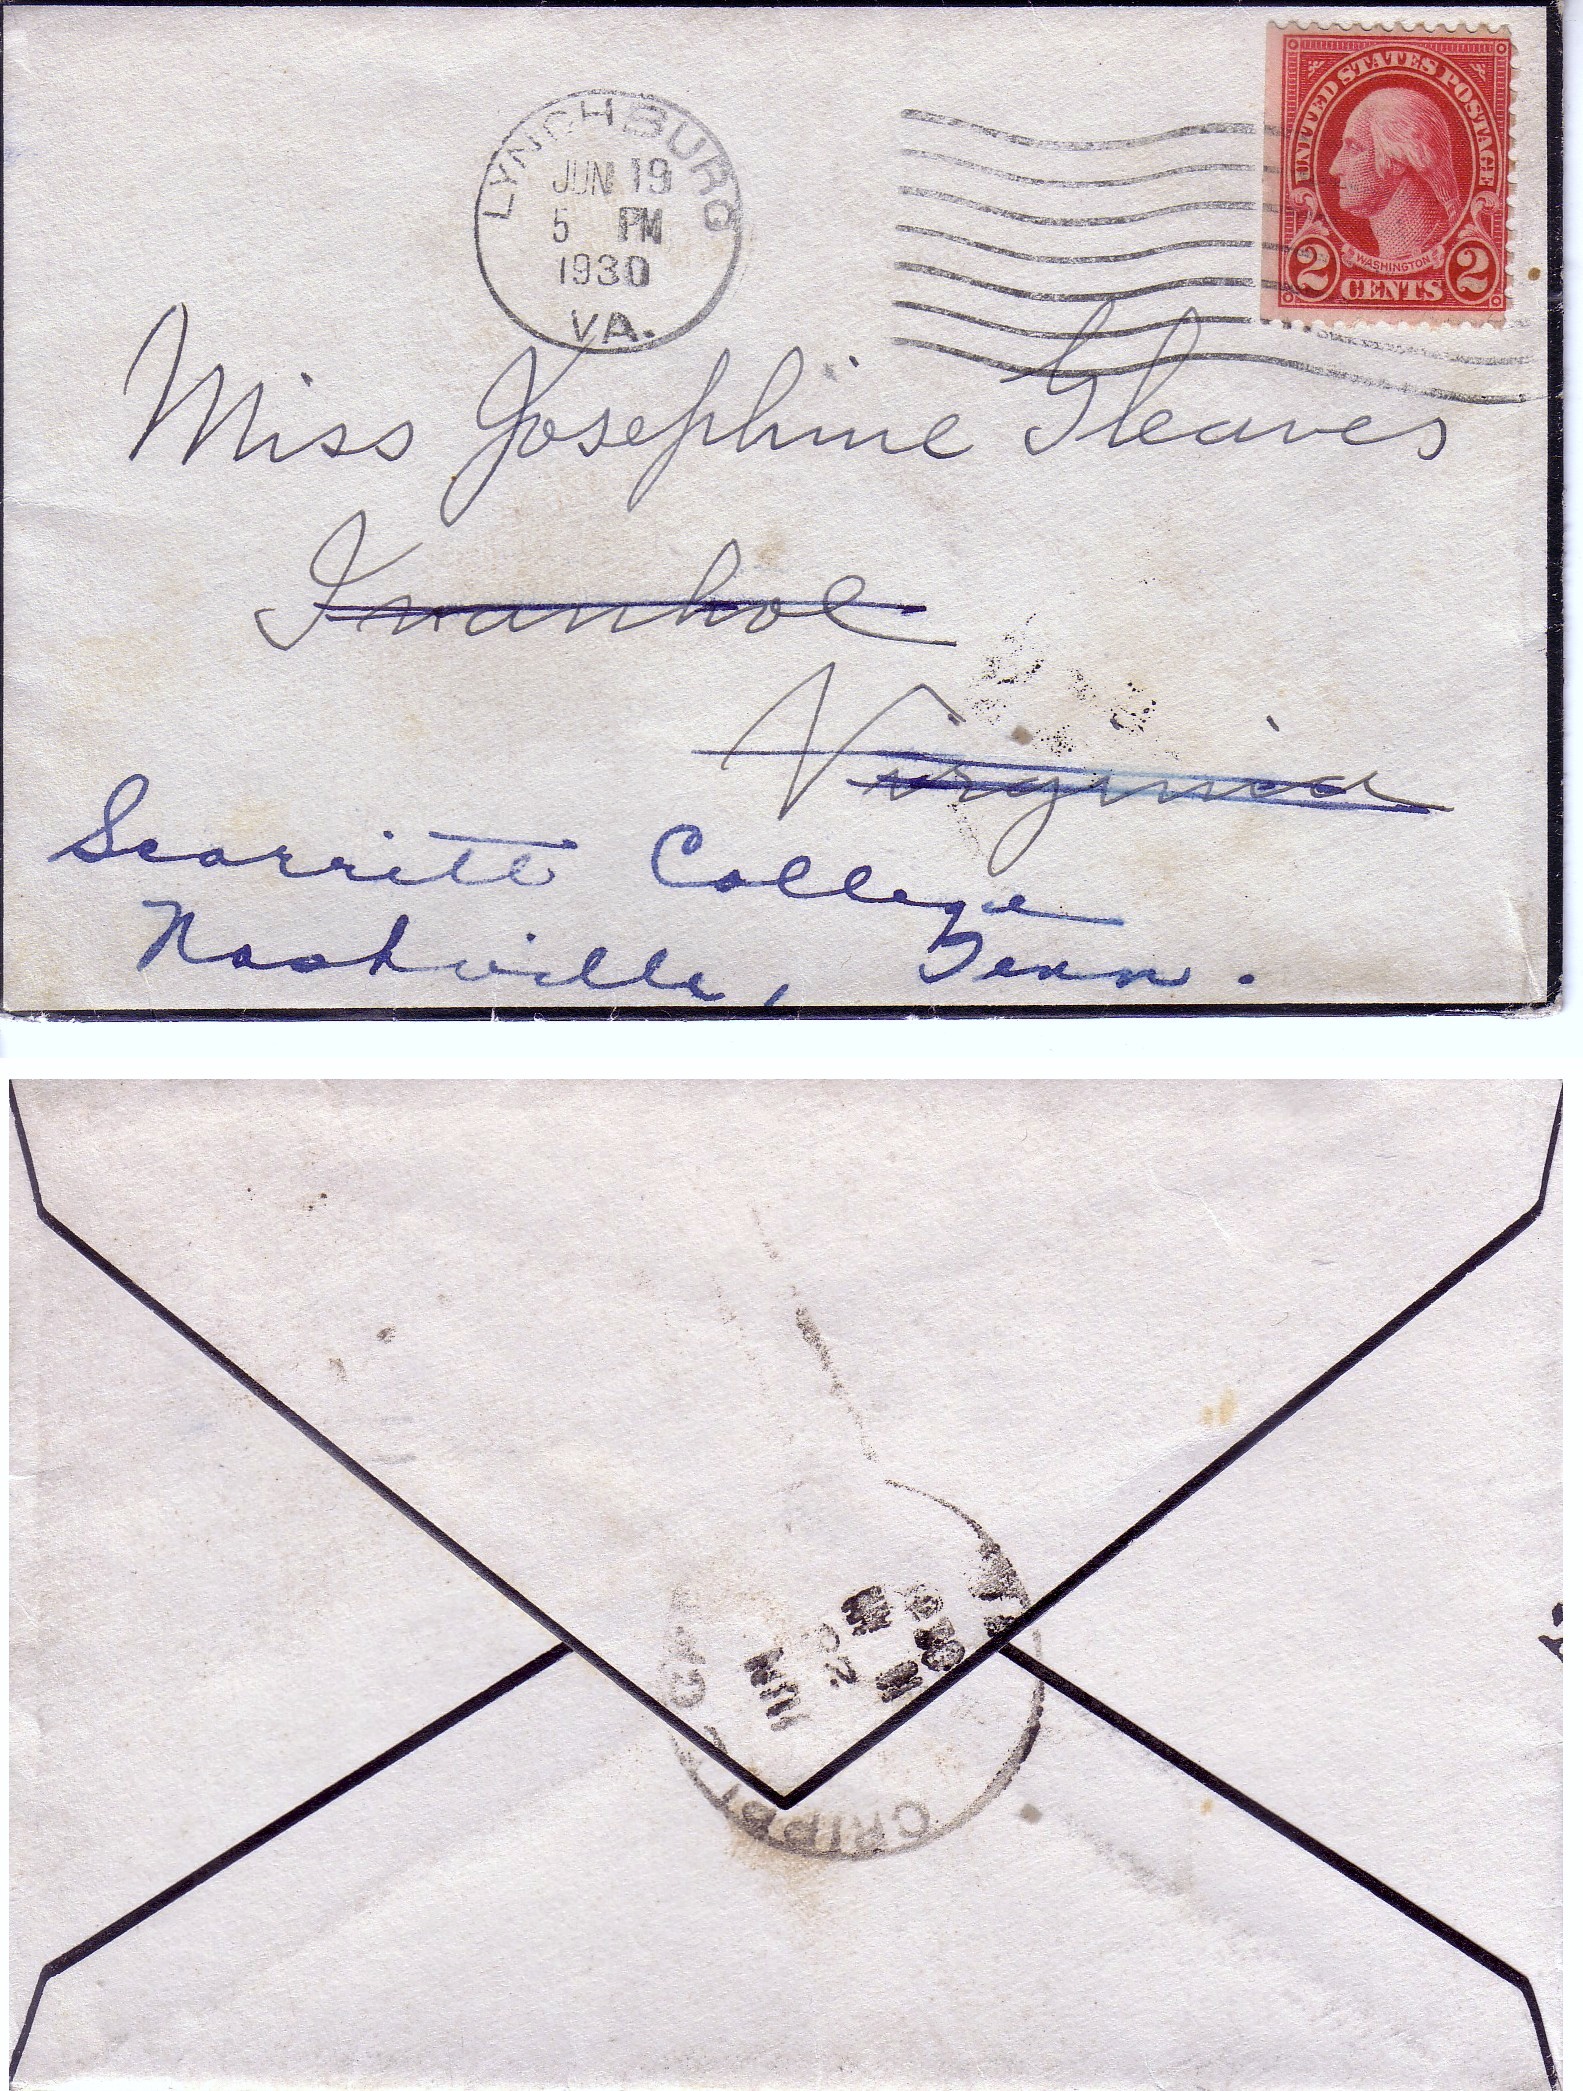 LYNCHBURG
JUN 19
5 PM
1930
VA.
UNITED STATES POSTAGE
WASHINGTON
2 CENTS 2
Miss Josephine Gleaves
Ivanhoe
Virginia
Scarritt College
Nashville, Tenn.
JUN